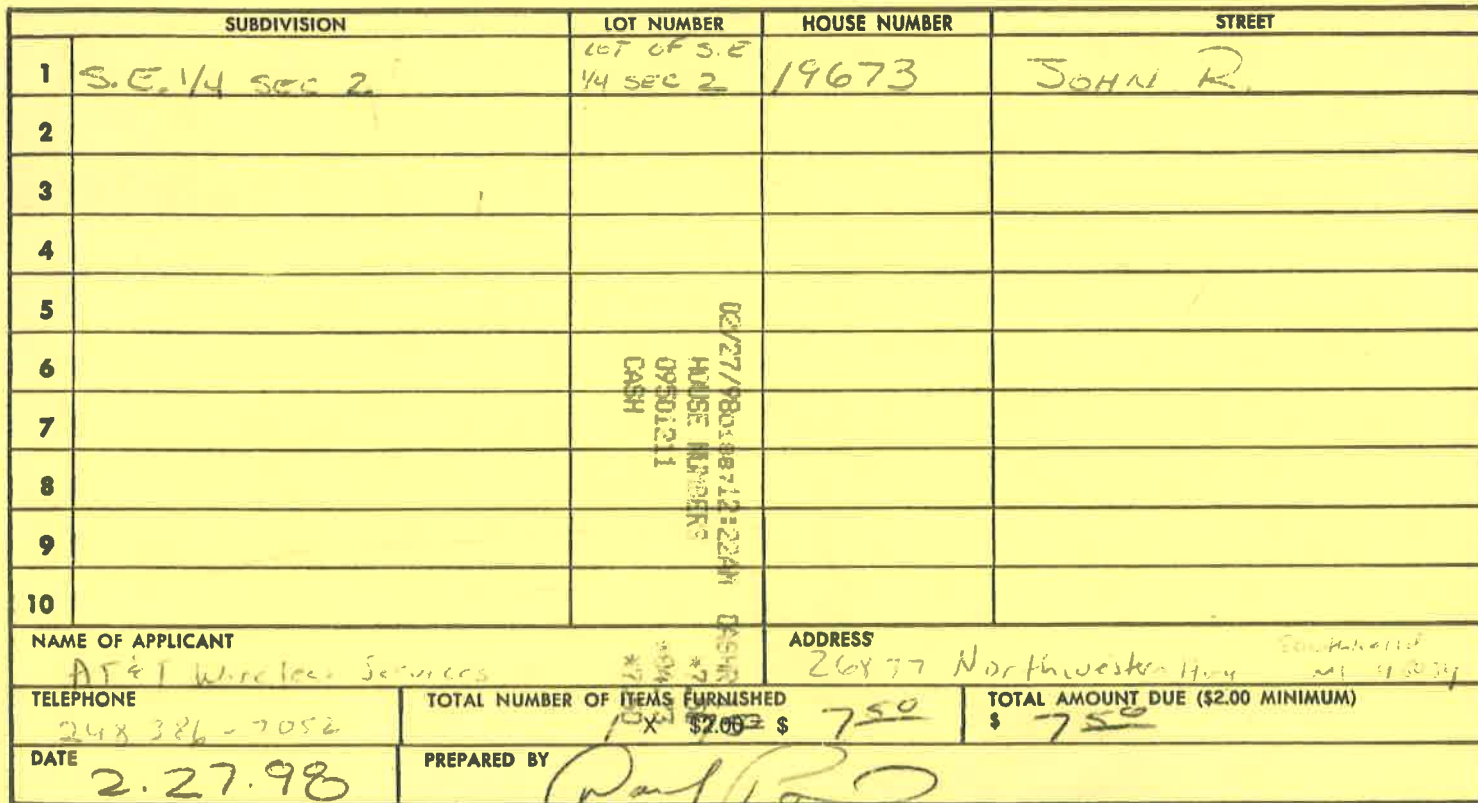 SUBDIVISION LOT NUMBER HOUSE NUMBER STREET
1 S.E. 1/4 SEC 2 LOT OF S.E 1/4 SEC 2 19673 JOHN R.
2
3
4
5
6
7
8
9
10
02/27/98 12:22AM
HOUSE NUMBERS
09501211
CASH
NAME OF APPLICANT
AT&T Wireless Services
ADDRESS
26877 Northwestern Hwy
TELEPHONE
248 386-7052
TOTAL NUMBER OF ITEMS FURNISHED
1 X $2.00 = $ 7 50
TOTAL AMOUNT DUE ($2.00 MINIMUM)
$ 7 50
DATE
2.27.98
PREPARED BY